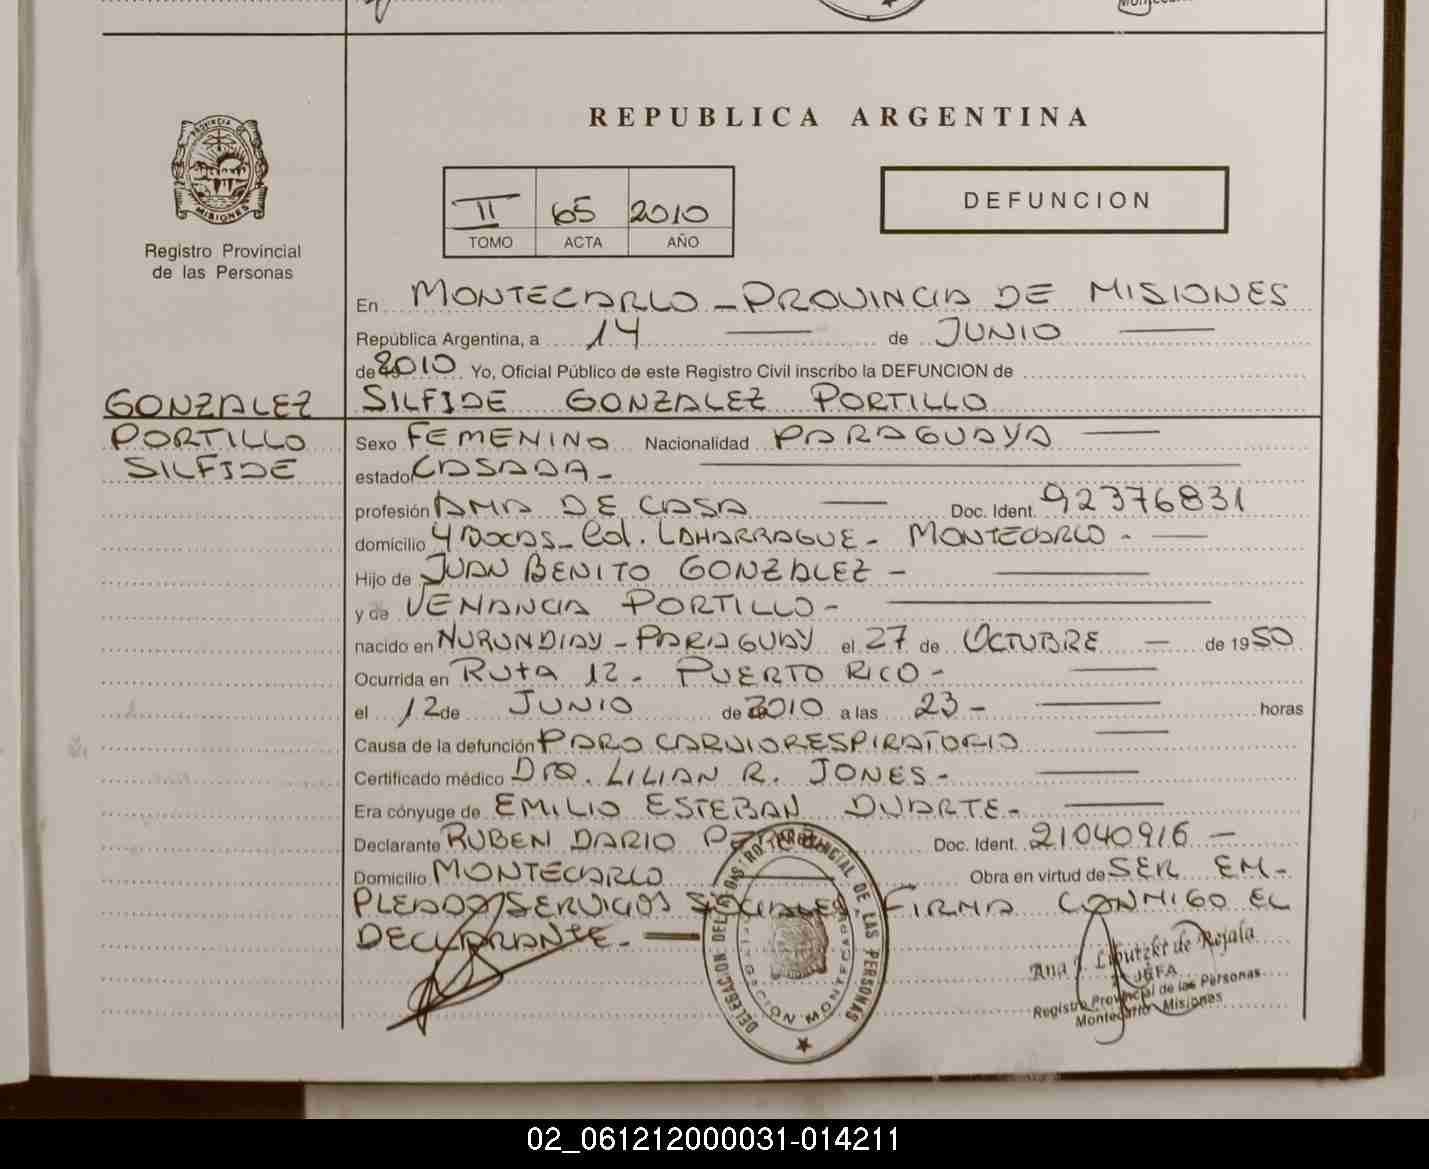 REPUBLICA ARGENTINA
PROVINCIA DE MISIONES
Registro Provincial
de las Personas
II 65 2010
TOMO ACTA AÑO
DEFUNCION
En MONTECARLO - PROVINCIA DE MISIONES
República Argentina, a 14 de JUNIO
de 2010 Yo, Oficial Público de este Registro Civil inscribo la DEFUNCION de
GONZALEZ SILFIDE GONZALEZ PORTILLO
PORTILLO Sexo FEMENINO Nacionalidad PARAGUAYA
SILFIDE estado CASADA -
profesión AMA DE CASA Doc. Ident. 92376831
domicilio 4 BOCAS - Col. LAHARRAGUE - MONTECARLO -
Hijo de JUAN BENITO GONZALEZ -
y de VENANCIA PORTILLO -
nacido en NURUNDIAY - PARAGUAY el 27 de OCTUBRE - de 1950
Ocurrida en RUTA 12 - PUERTO RICO -
el 12 de JUNIO de 2010 a las 23 - horas
Causa de la defunción PARO CARDIORESPIRATORIO
Certificado médico DRA. LILIAN R. JONES -
Era cónyuge de EMILIO ESTEBAN DUARTE -
Declarante RUBEN DARIO Doc. Ident. 21040916 -
Domicilio MONTECARLO Obra en virtud de SER EM-
PLEADO/SERVICIOS SOCIALES. FIRMA CONMIGO EL
DECLARANTE. -
DELEGACION DEL REGISTRO PROVINCIAL DE LAS PERSONAS
DELEGACION MONTECARLO
Ana J. de Rejala
JEFA
Registro Provincial de las Personas
Montecarlo - Misiones
02_061212000031-014211